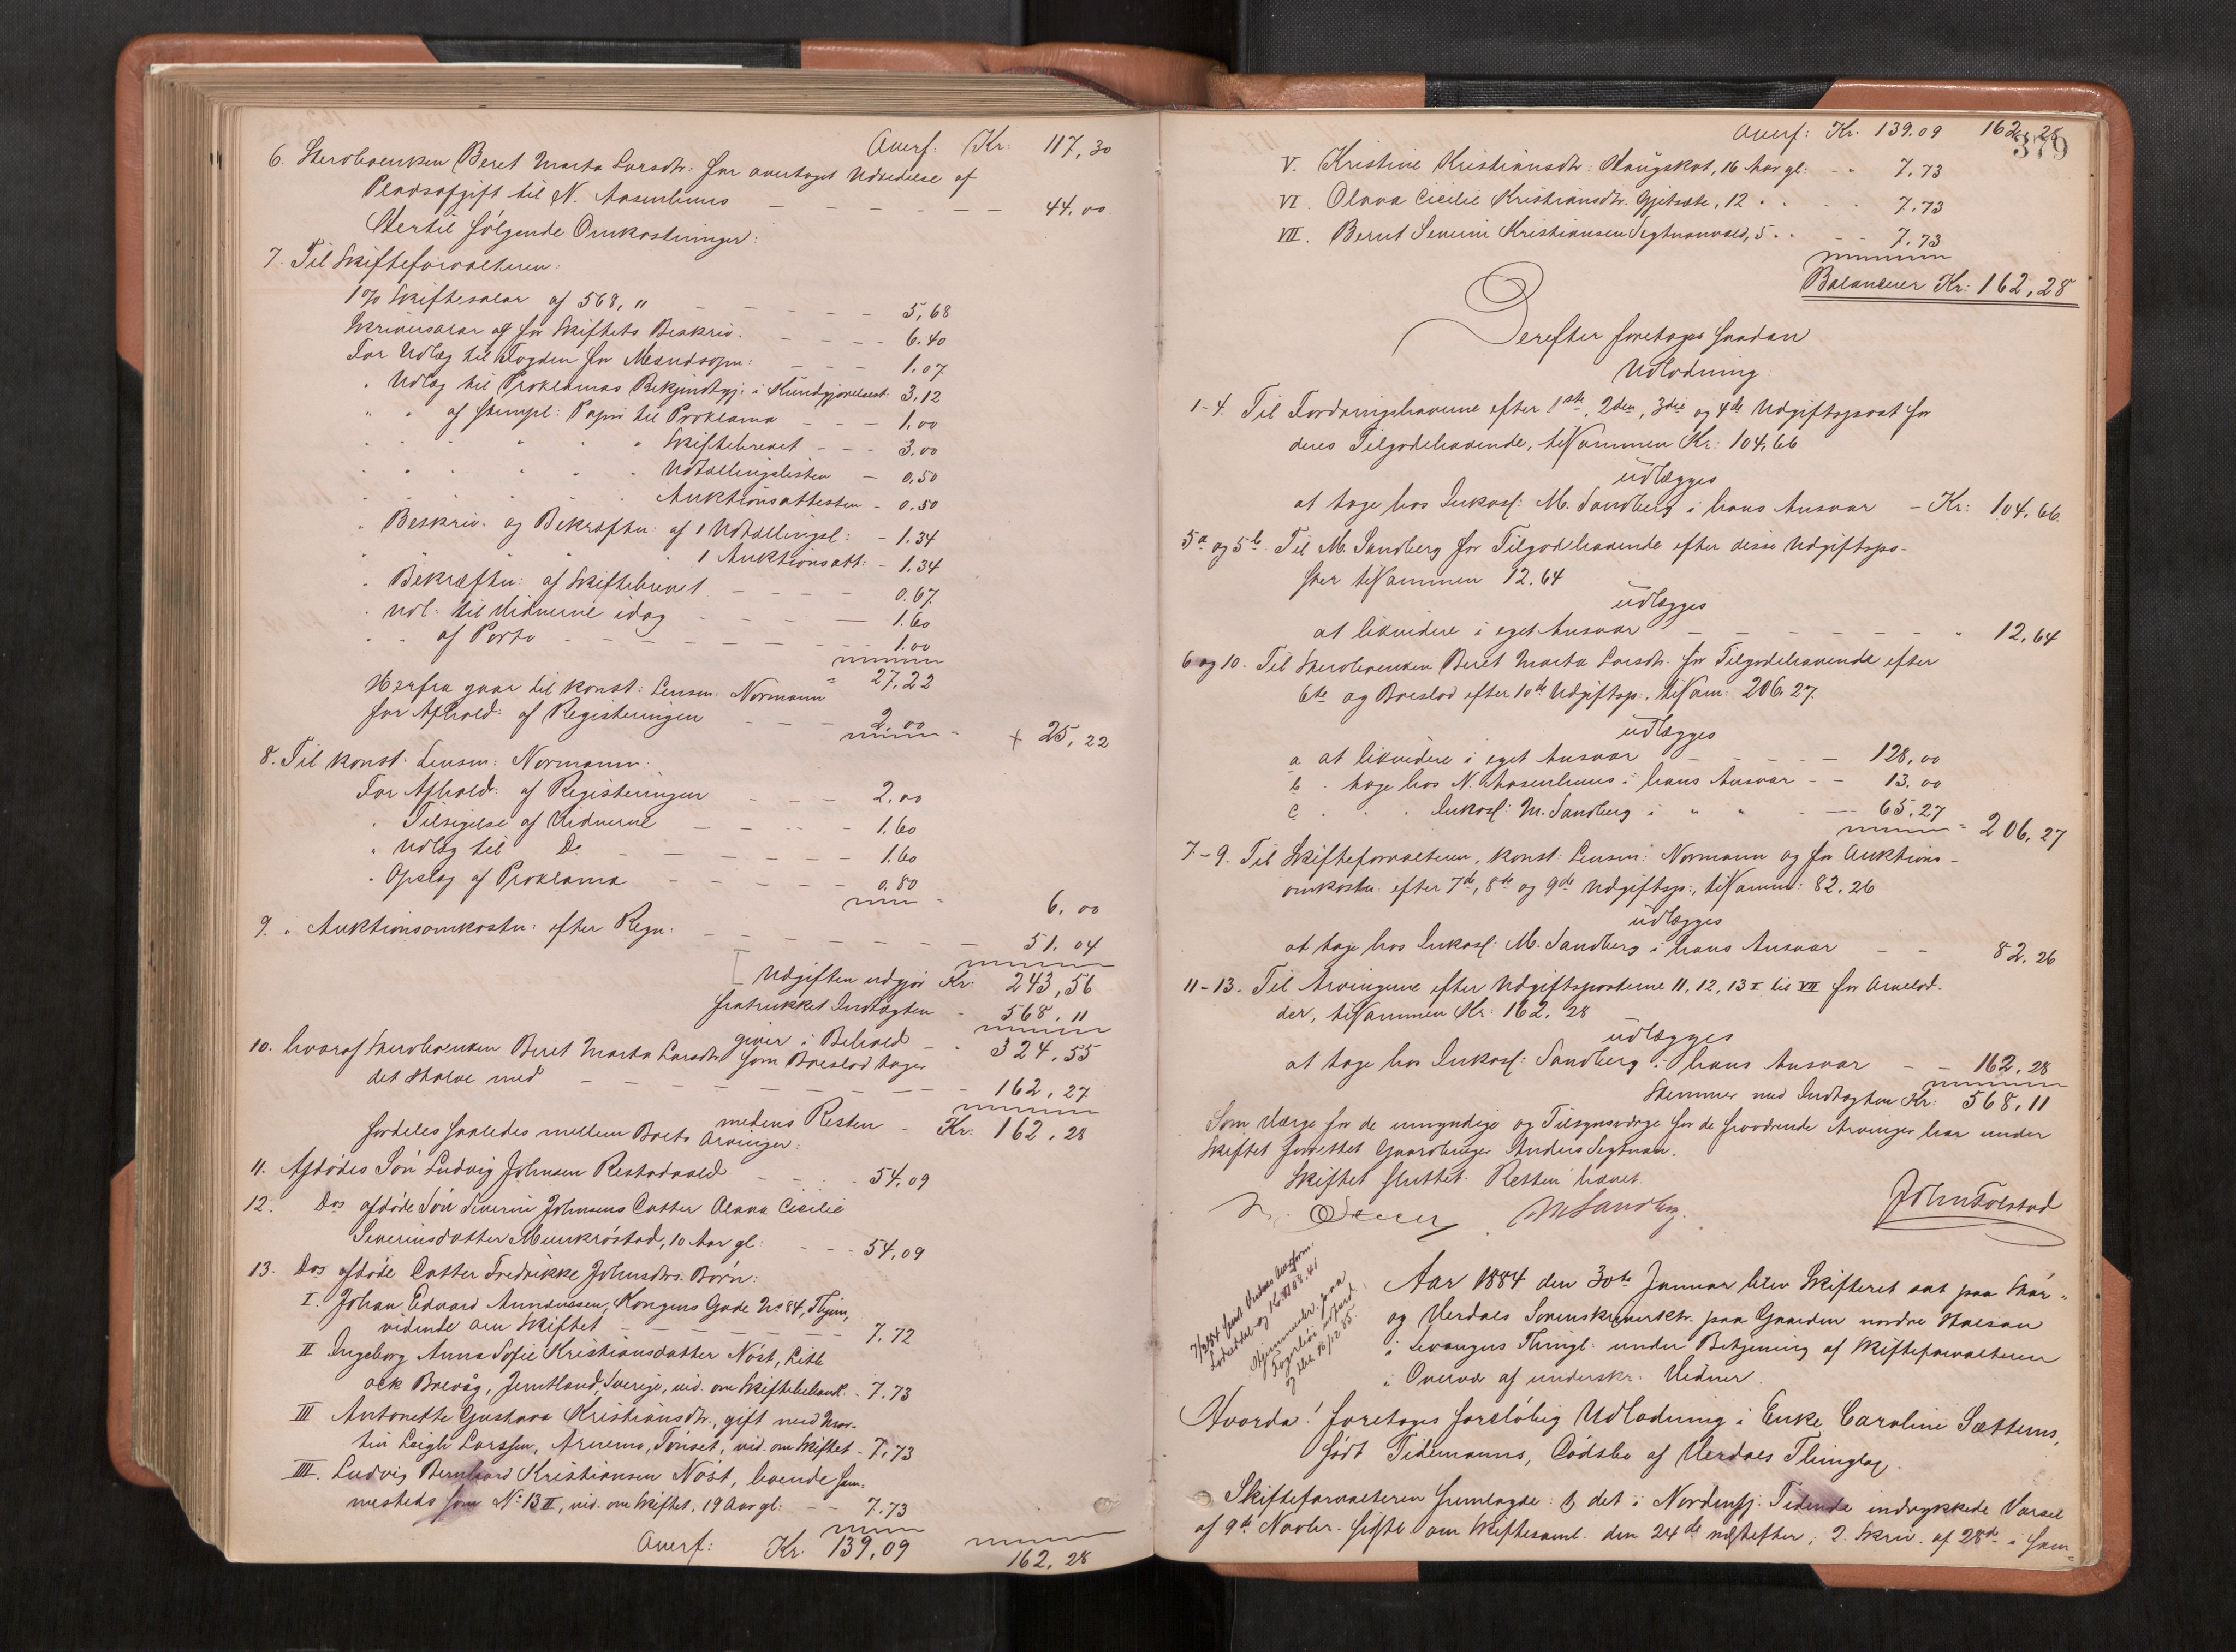 Overf. Kr: 117,30
6. Sterboenken Beret Marta Larsdtr: for overtaget Udredelse af
Pladsafgift til N. Aasenhuus — 44.00
Hertil følgende Omkostninger:
7. Til Skifteforvalteren:
1% Skiftesalær af 568, " — 5,68
Skriversalær og for Skiftets Beskriv. — 6.40
For Udlæg til Fogden for Mandsopn: — 1.07
" Udlæg til Proklamas Bekjendtgj. i Kundgjørelsest. 3,12
" " af stempl: Papir til Proklama — 1,00
" " " " " Skiftebrevet — 3,00
" " " " " Udtællingslisten — 0,50
" " " " " Auktionsattesten - 0.50
" Beskriv. og Bekræftn: af 1 Udtællingsl: - 1.34
" " " " 1 Auktionsatt: - 1.34
" Bekræftn: af Skiftebrevet — 0.67
" Udl. til Vidnerne idag — 1.60
" " af Porto — 1.00
= 27,22
Herfra gaar til konst: Lensm. Normann
for Afhold: af Registeringen — 2.00 - + 25,22
8. Til konst: Lensm: Normann:
For Afhold: af Registeringen — 2.00
" Tilsigelse af Vidnerne — 1.60
" Udlæg til Do — 1.60
" Opslag af Proklama — 0.80 - 6,00
9. " Auktionsomkostn: efter Regn: — 51.04
Udgiften udgjør Kr: 243,56
fratrukket Indtægten - 568,11
giver i Behold - " 324,55
10. hvoraf Sterboenken Beret Marta Larsdtr som Boeslod tager
det Halve med — 162,27
medens Resten - Kr: 162,28
fordeles saaledes mellem Boets Arvinger:
11. Afdødes Søn Ludvig Johnsen Restadvald — 54,09
12. Dos afdøde Søn Severin Johnsens Datter Olava Cicilie
Severinsdatter Munkrøstad, 10 Aar gl: — 54,09
13. Dos afdøde Datter Fredrikke Johnsdtrs. Børn:
I. Johan Eduard Amundssen, Kongens Gade No 84, Thjem,
vidende om Skiftet — 7.72
II Ingeborg Anna Sofie Kristiansdatter Nøst,
Brevåg, Jemtland, Sverige, vid. om Skiftebehand. - 7.73
III Antonette Gustava Kristiansdtr., gift med Mar-
tin Larssen, Tønset, vid. om Skiftet - 7.73
IIII. Ludvig Bernhard Kristiansen Nøst, boende sam-
mesteds som No 13 II, vid. om Skiftet, 19 Aar gl: — 7.73
Overf: Kr. 139,09 162,28
379
Overf: Kr. 139.09 162,28
V. Kristine Kristiansdtr: Haugskot, 16 Aar gl: - " 7.73
VI. Olava Cicilie Kristiansdtr. Gjitsæte, 12 " " 7.73
VII. Bernt Severin Kristiansen Segtnanvald, 5 " " - 7.73
Balancerer Kr: 162,28
Derefter foretoges saadan
Udlodning:
1-4. Til Fordringshaverne efter 1ste, 2den, 3die og 4de Udgiftspost for
deres Tilgodehavende, tilsammen Kr: 104,66
udlægges
at tage hos Inkass: M. Sandberg i hans Ansvar - Kr: 104,66.
5a og 5b. Til M. Sandberg for Tilgodehavende efter disse Udgiftspo-
ster tilsammen 12.64
udlægges
at likvidere i eget Ansvar — " 12,64
6 og 10. Til Sterboenken Beret Marta Larsdtr. for Tilgodehavende efter
6te og Boeslod efter 10de Udgiftsp., tilsam: 206.27.
udlægges
a at likvidere i eget Ansvar — 128,00
b " tage hos N. Aasenhuus i hans Ansvar - - 13.00
c " " " Inkass: M. Sandberg i " " — 65.27 = 206,27
7-9. Til Skifteforvalteren, konst: Lensm: Normann og for Auktions-
omkostn. efter 7de, 8de og 9de Udgiftsp:, tilsamm: 82.26
udlægges
at tage hos Inkass: M. Sandberg i hans Ansvar — 82,26
11-13. Til Arvingerne efter Udgiftsposterne 11, 12, 13 I til VII for Arvelod-
der, tilsammen Kr: 162.28
udlægges
at tage hos Inkass: Sandberg i hans Ansvar - - 162,28
Stemmer med Indtægten Kr: 568,11
Som Værge for de umyndige og Tilsynsværge for de fraværende Arvinger har under
Skiftet fungeret Gaardbruger Anders Segtnan.
Skiftet sluttet. Retten hævet.
M Sandberg. John Tolstad
Aar 1884 den 30te Januar blev Skifteret sat paa Stør-
og Værdals Sorenskriverktr. paa Gaarden nordre Halsan
i Levangers Thingl. under Betjening af Skifteforvalteren
i Overvær af underskr. Vidner.
Hvorda! foretoges foreløbig Udlodning i Enke Caroline Sættems,
født Tidemanns, Dødsbo af Værdals Thinglag.
Skifteforvalteren fremlagde: 1, det i Nordenfj. Tidende indrykkede Varsel
af 9de Novbr. sidstl. om Skiftesaml. den 24de næstefter; 2. Skriv. af 28de i sam-